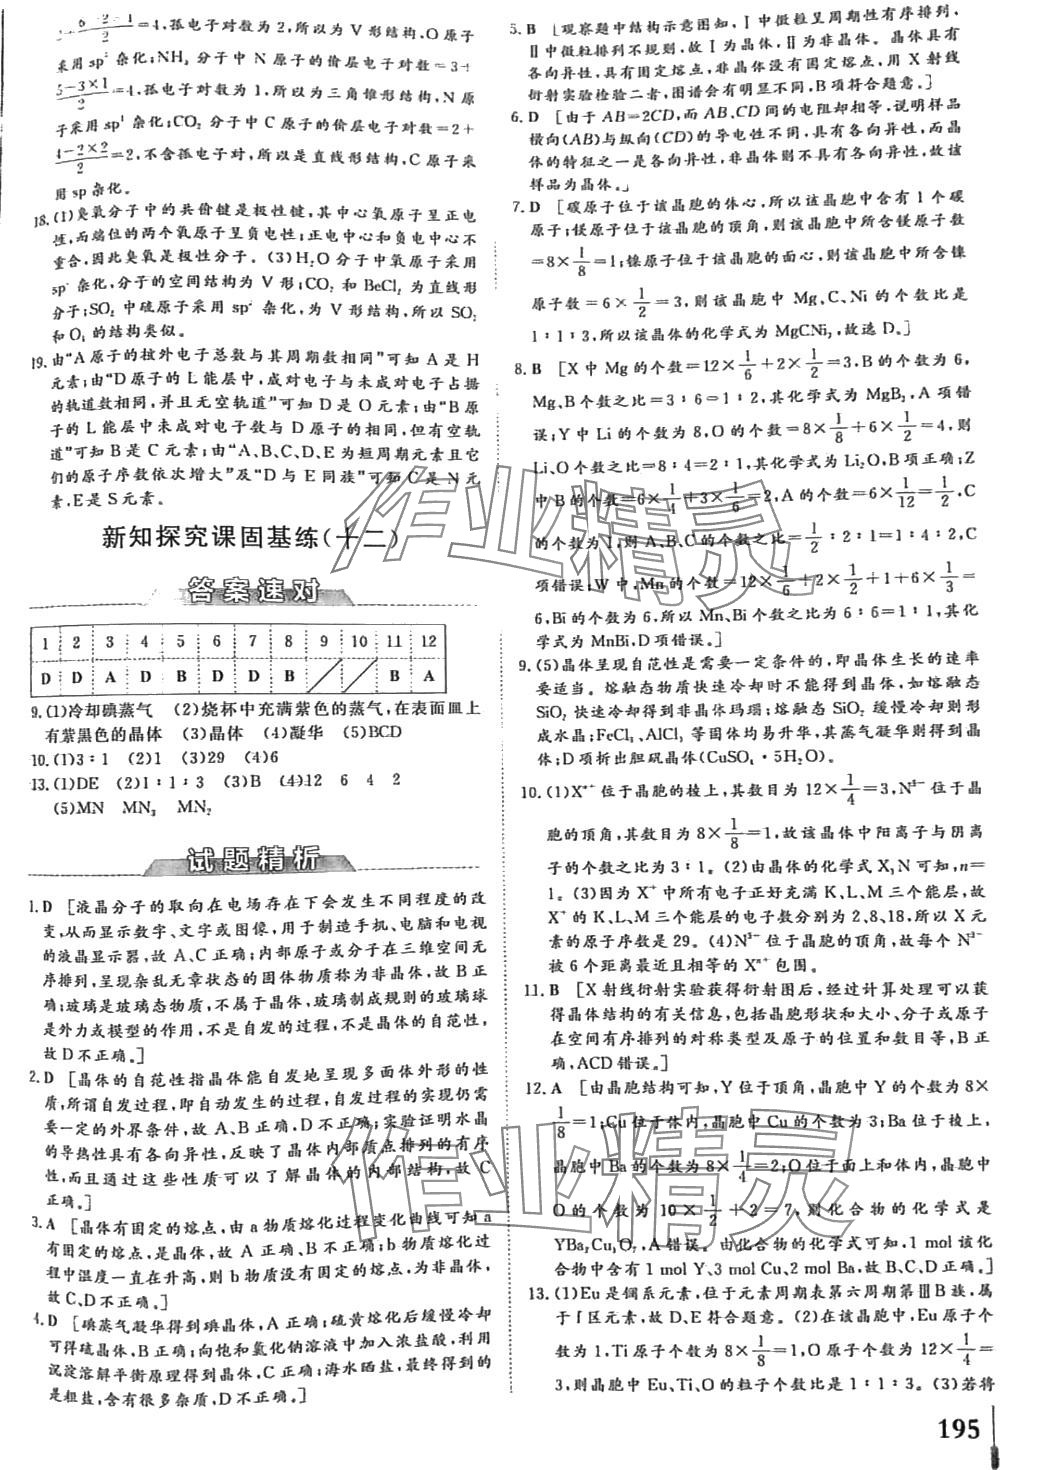 2+(6-2-1)/2=2,孤电子对数为2,所以为V形结构,O原子
采用sp³杂化;NH₃分子中N原子的价层电子对数=3+
(5-3×1)/2=4,孤电子对数为1,所以为三角锥形结构,N原
子采用sp³杂化;CO₂分子中C原子的价层电子对数=2+
(4-2×2)/2=2,不含孤电子对,所以是直线形结构,C原子采
用sp杂化。
18.(1)臭氧分子中的共价键是极性键,其中心氧原子呈正电
性,而端位的两个氧原子呈负电性;正电中心和负电中心不
重合,因此臭氧是极性分子。(3)H₂O分子中氧原子采用
sp³杂化,分子的空间结构为V形;CO₂和BeCl₂为直线形
分子;SO₂中硫原子采用sp²杂化,为V形结构,所以SO₂
和O₃的结构类似。
19.由“A原子的核外电子总数与其周期数相同”可知A是H
元素;由“D原子的L能层中,成对电子与未成对电子占据
的轨道数相同,并且无空轨道”可知D是O元素;由“B原
子的L能层中未成对电子数与D原子的相同,但有空轨
道”可知B是C元素;由“A、B、C、D、E为短周期元素且它
们的原子序数依次增大”及“D与E同族”可知C是N元
素,E是S元素。
新知探究课固基练(十二)
答案速对
1 2 3 4 5 6 7 8 9 10 11 12
D D A D B D D B B A
9.(1)冷却碘蒸气 (2)烧杯中充满紫色的蒸气,在表面皿上
有紫黑色的晶体 (3)晶体 (4)凝华 (5)BCD
10.(1)3∶1 (2)1 (3)29 (4)6
13.(1)DE (2)1∶1∶3 (3)B (4)12 6 4 2
(5)MN MN₃ MN₂
试题精析
1.D [液晶分子的取向在电场存在下会发生不同程度的改
变,从而显示数字、文字或图像,用于制造手机、电脑和电视
的液晶显示器,故A、C正确;内部原子或分子在三维空间无
序排列,呈现杂乱无章状态的固体物质称为非晶体,故B正
确;玻璃是玻璃态物质,不属于晶体,玻璃制成规则的玻璃球
是外力或模型的作用,不是自发的过程,不是晶体的自范性,
故D不正确。]
2.D [晶体的自范性指晶体能自发地呈现多面体外形的性
质,所谓自发过程,即自动发生的过程,自发过程的实现仍需
要一定的外界条件,故A、B正确,D不正确;实验证明水晶
的导热性具有各向异性,反映了晶体内部质点排列的有序
性,而且通过这些性质可以了解晶体的内部结构,故C
正确。]
3.A [晶体有固定的熔点,由a物质熔化过程变化曲线可知a
有固定的熔点,是晶体,故A正确、B不正确;b物质熔化过
程中温度一直在升高,则b物质没有固定的熔点,为非晶体,
故C、D不正确。]
4.D [碘蒸气凝华得到碘晶体,A正确;硫黄熔化后缓慢冷却
可得硫晶体,B正确;向饱和氯化钠溶液中加入浓盐酸,利用
沉淀溶解平衡原理得到晶体,C正确;海水晒盐,最终得到的
是粗盐,含有很多杂质,D错误。]
5.B [观察题中结构示意图知,Ⅰ中微粒呈周期性有序排列,
Ⅱ中微粒排列不规则,故Ⅰ为晶体,Ⅱ为非晶体。晶体具有
各向异性,具有固定熔点,非晶体没有固定熔点,用X射线
衍射实验检验二者,图谱会有明显不同,B项符合题意。]
6.D [由于AB=2CD,而AB、CD间的电阻却相等,说明样品
横向(AB)与纵向(CD)的导电性不同,具有各向异性,而晶
体的特征之一是各向异性,非晶体则不具有各向异性,故该
样品为晶体。]
7.D [碳原子位于该晶胞的体心,所以该晶胞中含有1个碳
原子;镁原子位于该晶胞的顶角,则该晶胞中所含镁原子数
=8×1/8=1;镍原子位于该晶胞的面心,则该晶胞中所含镍
原子数=6×1/2=3,则该晶胞中Mg、C、Ni的个数比是
1∶1∶3,所以该晶体的化学式为MgCNi₃,故选D。]
8.B [X中Mg的个数=12×1/6+2×1/2=3,B的个数为6,
Mg、B个数之比=3∶6=1∶2,其化学式为MgB₂,A项错
误;Y中Li的个数为8,O的个数=8×1/8+6×1/2=4,则
Li、O个数之比=8∶4=2∶1,其化学式为Li₂O,B项正确;Z
中B的个数=6×1/4+3×1/6=2,A的个数=6×1/12=1/2,C
的个数为1,则A、B、C的个数之比=1/2∶2∶1=1∶4∶2,C
项错误;W中,Mn的个数=12×1/6+2×1/2+1+6×1/3=
6,Bi的个数为6,所以Mn、Bi个数之比为6∶6=1∶1,其化
学式为MnBi,D项错误。]
9.(5)晶体呈现自范性是需要一定条件的,即晶体生长的速率
要适当。熔融态物质快速冷却时不能得到晶体,如熔融态
SiO₂快速冷却得到非晶体玛瑙;熔融态SiO₂缓慢冷却则形
成水晶;FeCl₃、AlCl₃等固体均易升华,其蒸气凝华则得到晶
体;D项析出胆矾晶体(CuSO₄·5H₂O)。
10.(1)Xⁿ⁺位于晶胞的棱上,其数目为12×1/4=3,N³⁻于晶
胞的顶角,其数目为8×1/8=1,故该晶体中阳离子与阴离
子的个数之比为3∶1。(2)由晶体的化学式X₃N可知,n=
1。(3)因为X⁺中所有电子正好充满K、L、M三个能层,故
X⁺的K、L、M三个能层的电子数分别为2、8、18,所以X元
素的原子序数是29。(4)N³⁻位于晶胞的顶角,故每个N³⁻
被6个距离最近且相等的Xⁿ⁺包围。
11.B [X射线衍射实验获得衍射图后,经过计算处理可以获
得晶体结构的有关信息,包括晶胞形状和大小、分子或原子
在空间有序排列的对称类型及原子的位置和数目等,B正
确,ACD错误。]
12.A [由晶胞结构可知,Y位于顶角,晶胞中Y的个数为8×
1/8=1;Cu位于体内,晶胞中Cu的个数为3;Ba位于棱上,
晶胞中Ba的个数为8×1/4=2;O位于面上和体内,晶胞中
O的个数为10×1/2+2=7。则化合物的化学式是
YBa₂Cu₃O₇,A错误。由化合物的化学式可知,1 mol该化
合物中有1 mol Y、3 mol Cu、2 mol Ba,故B、C、D正确。]
13.(1)Eu是镧系元素,位于元素周期表第六周期第ⅢB族,属
于f区元素,故D、E符合题意。(2)在该晶胞中,Eu原子个
数为1,Ti原子个数为8×1/8=1,O原子个数为12×1/4=
3,则晶胞中Eu、Ti、O的粒子个数比是1∶1∶3。(3)若将
195
作业精灵
作业精灵